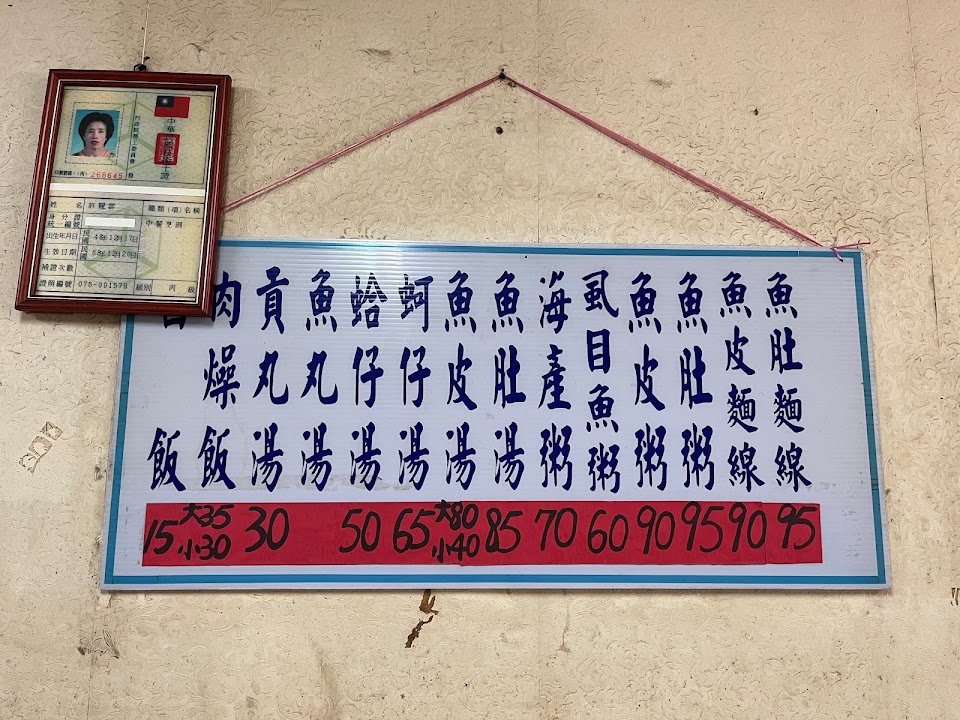 魚肚麵線 95
魚皮麵線 90
魚肚粥 95
魚皮粥 90
虱目魚粥 60
海產粥 70
魚肚湯 85
魚皮湯 大80 小40
蚵仔湯 65
蛤仔湯 50
魚丸湯
貢丸湯 30
肉燥飯 大35 小30
飯 15
中華民國技術士證
行政院勞工委員會
發
268645
姓名
職類(項)名稱
身分證統一編號
中餐烹調
出生年月日 民國48年12月17日
生效日期 民國88年12月20日
補證次數
證照編號 075-091579 級別 丙級